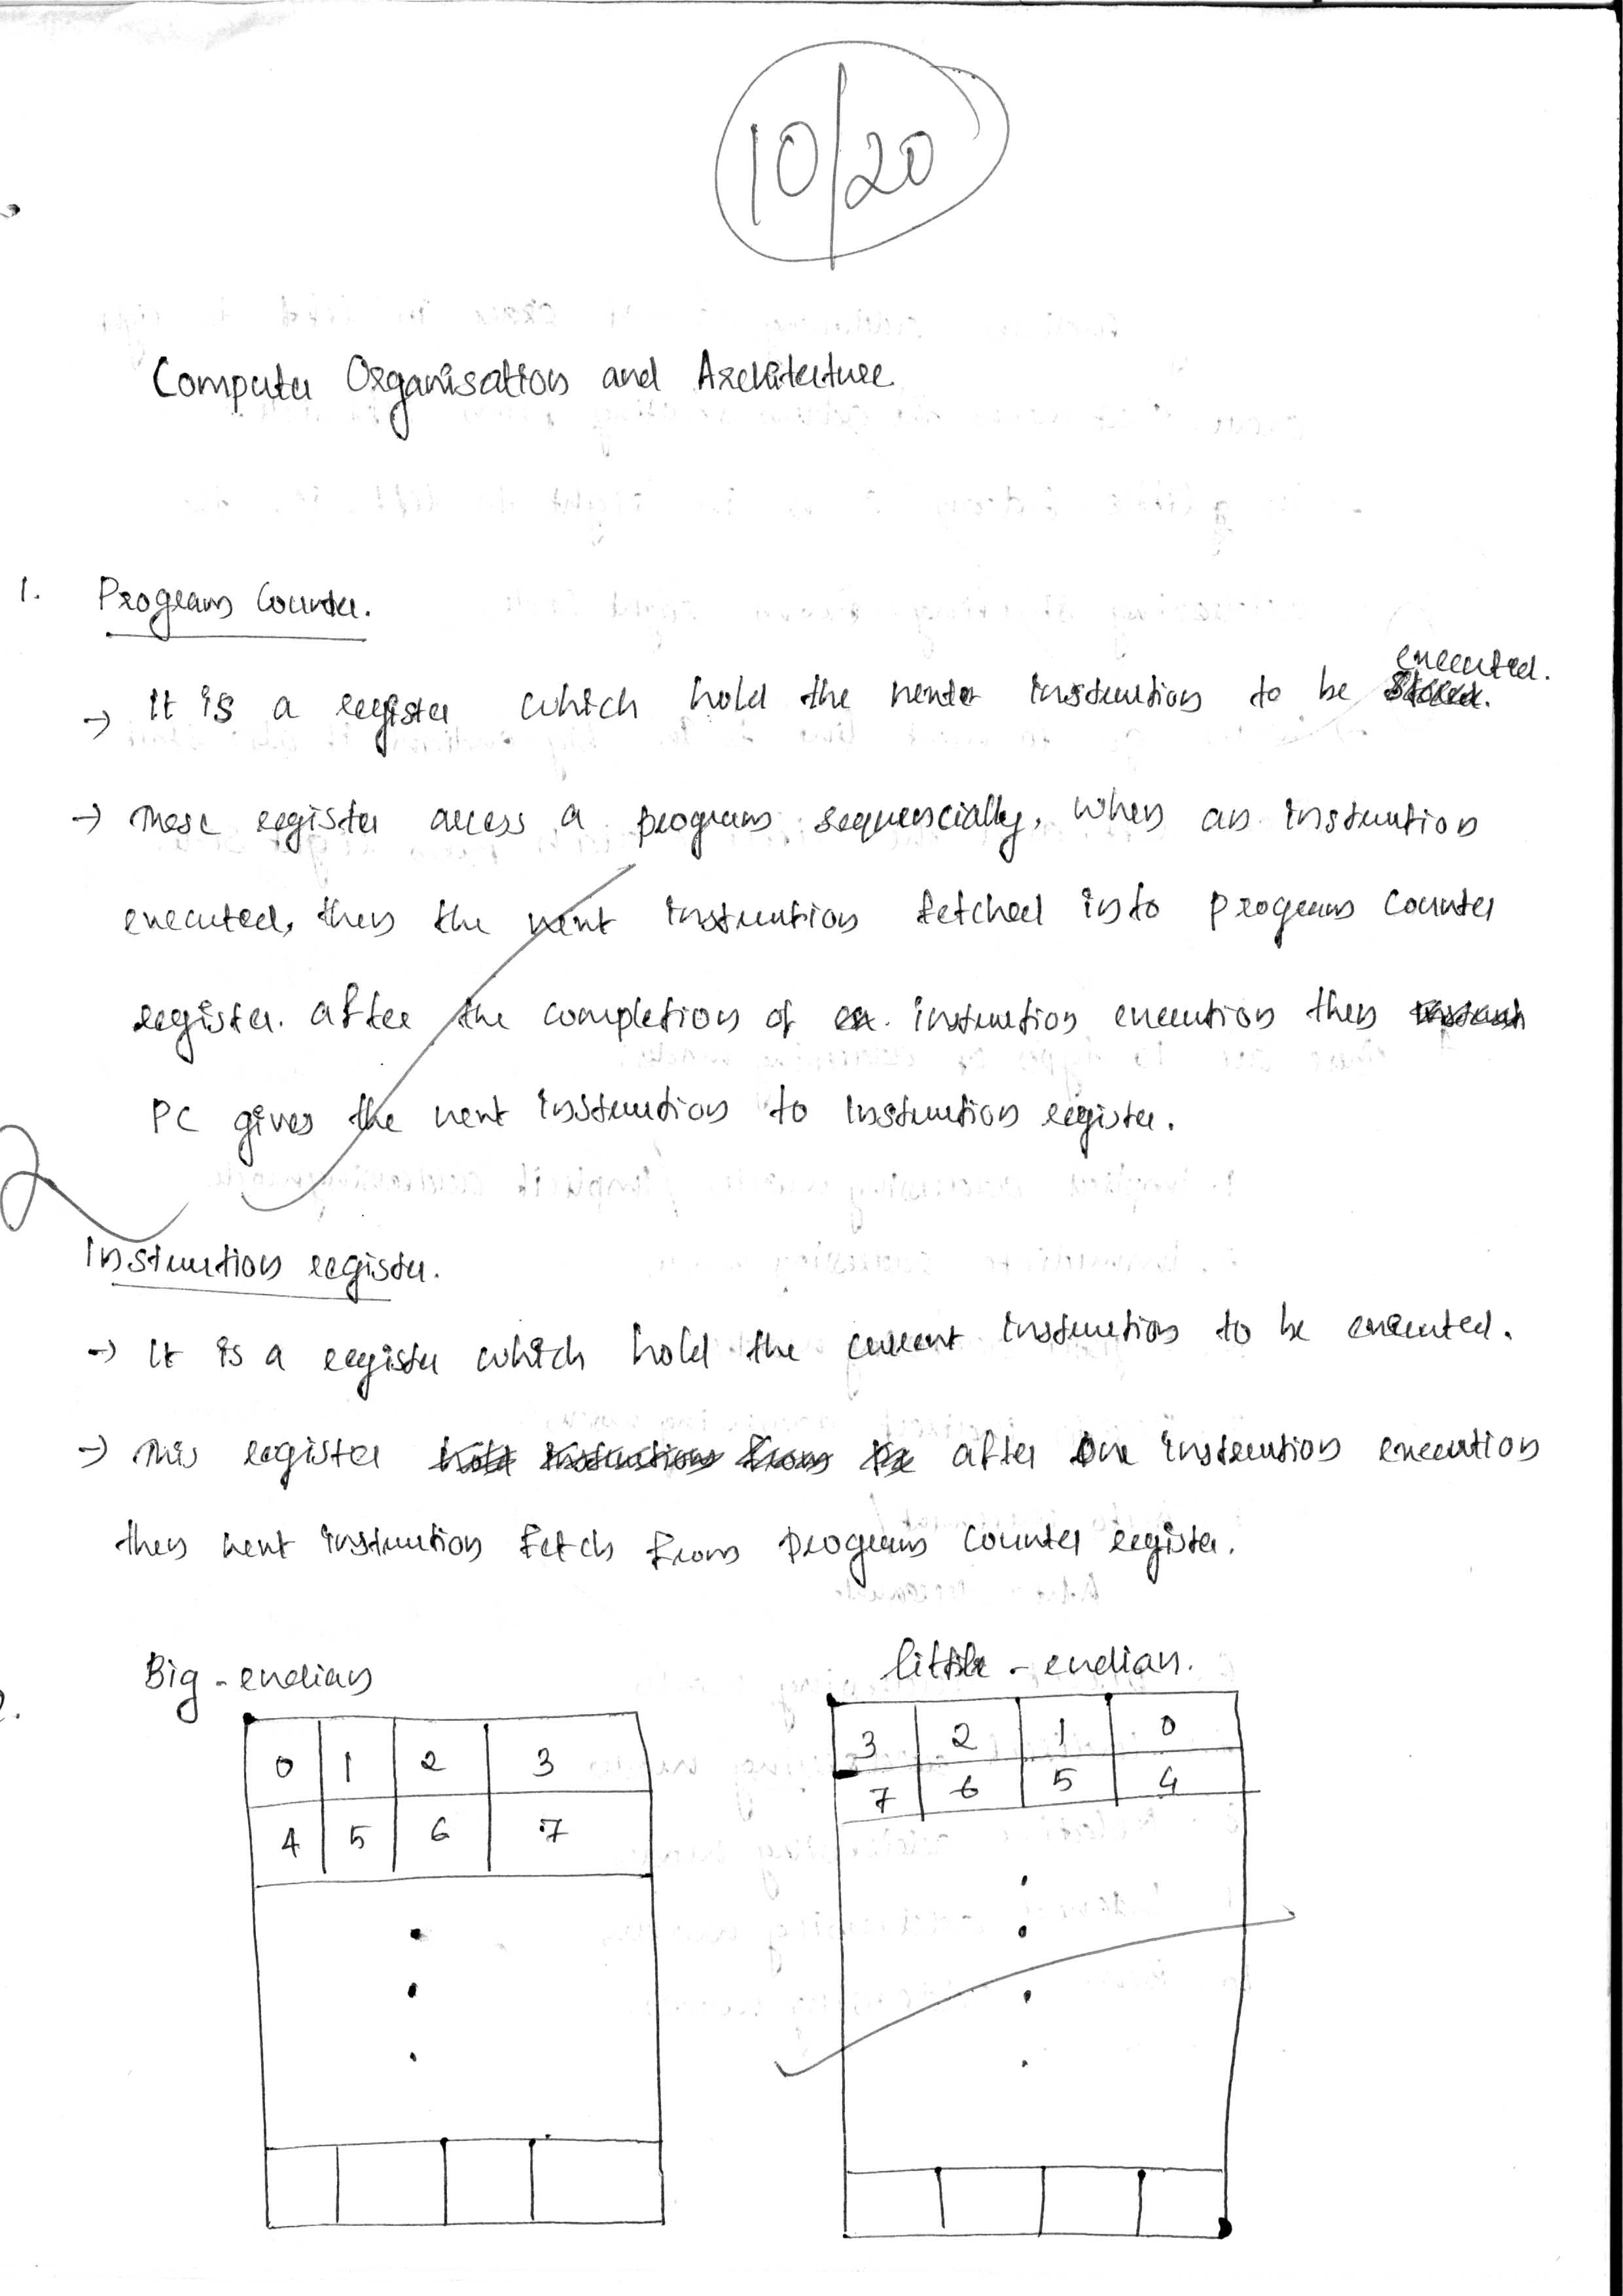 10/20
Computer Organisation and Architecture
1. Program Counter.
executed.
→ It is a register which hold the next instruction to be
→ These register access a program sequencially, when an instruction
executed, then the next instruction fetched into program counter
register. after the completion of instruction execution then
PC gives the next instruction to instruction register.
2
Instruction register.
→ It is a register which hold the current instruction to be executed.
→ This register after one instruction execution
then next instruction fetch from program counter register.
2. Big-endian little-endian.
0 1 2 3 3 2 1 0
4 5 6 7 7 6 5 4